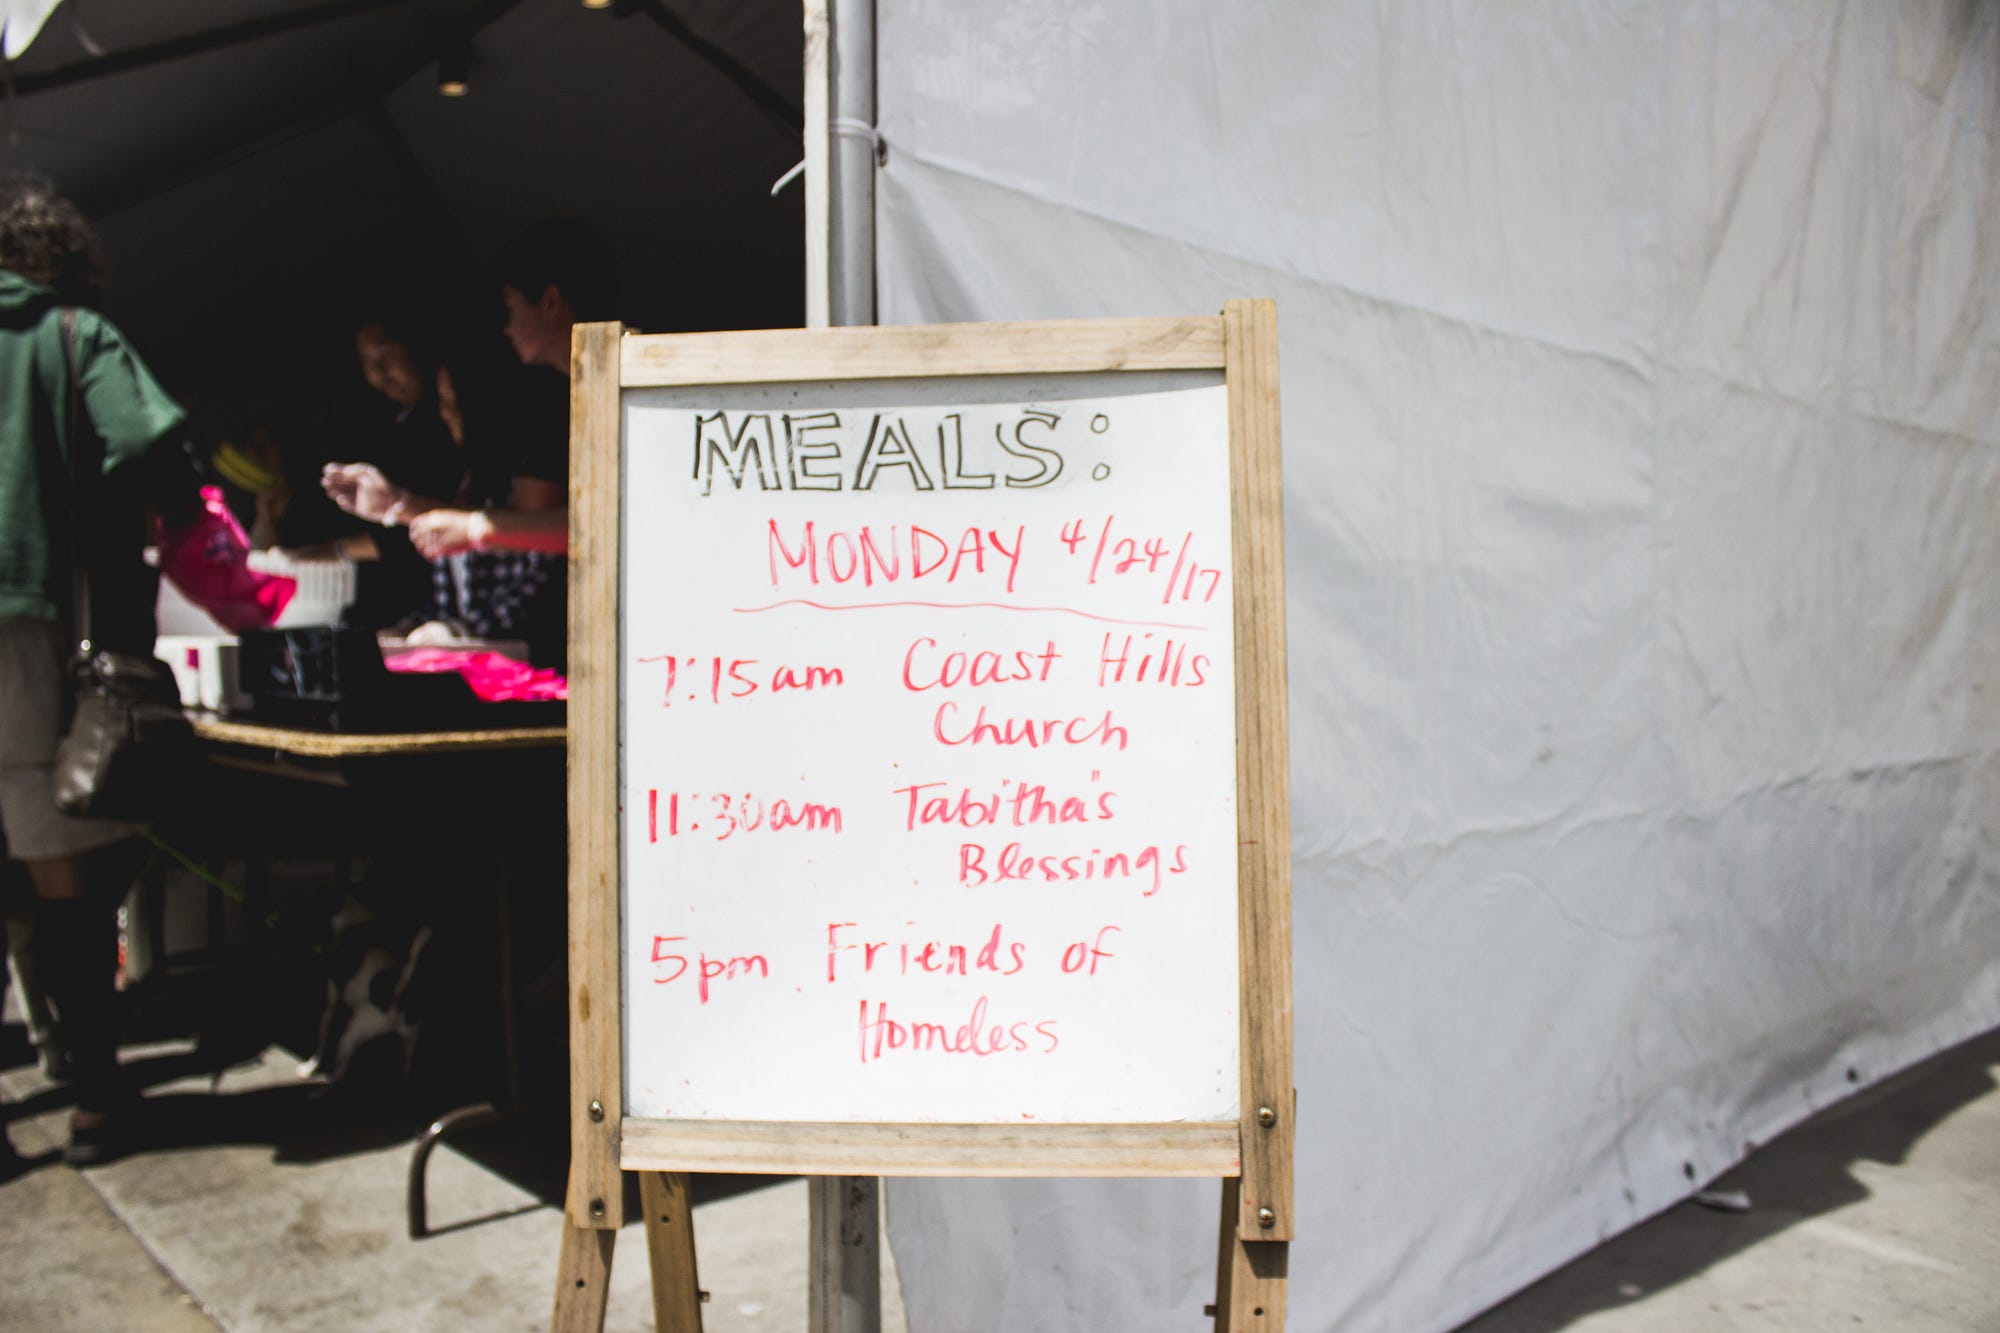 MEALS:
MONDAY 4/24/17
7:15am Coast Hills
Church
11:30am Tabitha's
Blessings
5pm Friends of
Homeless